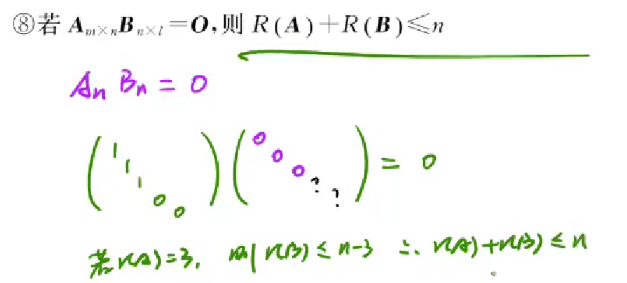 ⑧若 AₘₓₙBₙₓₗ=O,则 R(A)+R(B)≤n
Aₙ Bₙ = 0
(1 1 1 0 0)(0 0 0 ? ?) = 0
若r(A)=3, 则r(B)≤n-3 ∴ r(A)+r(B)≤n